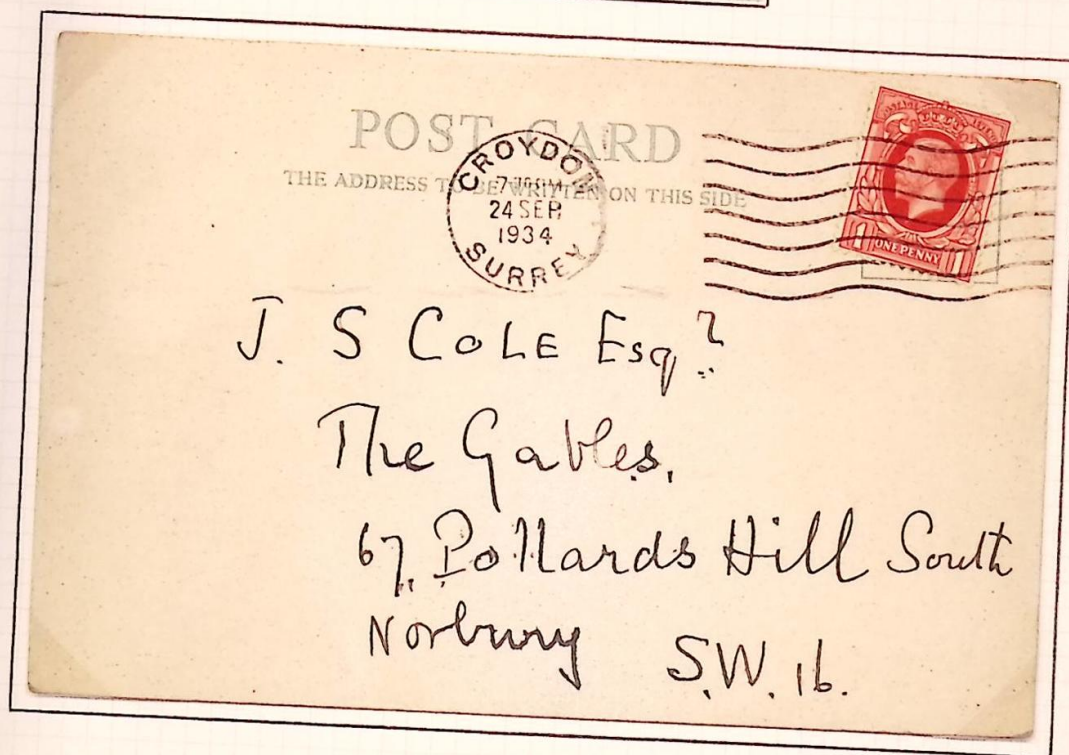 POST CARD
THE ADDRESS TO BE WRITTEN ON THIS SIDE
CROYDON
24 SEP
1934
SURREY
1 ONE PENNY 1
J. S COLE Esqr
The Gables.
67, Pollards Hill South
Norbury S.W. 16.